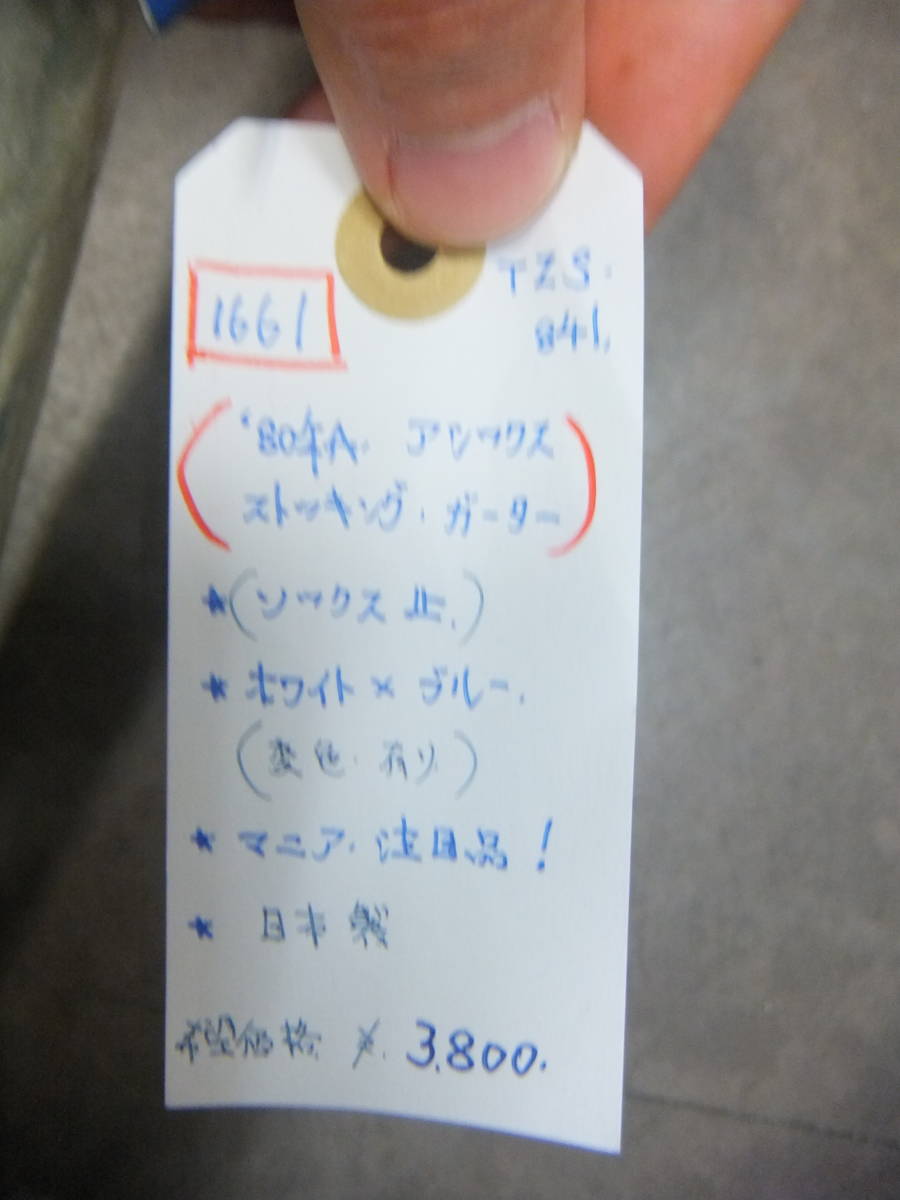 1661
TZS.
841.
('80年A. アシックス
ストッキング・ガーター)
★(ソックス止.)
★ホワイト×ブルー.
(変色.有り)
★マニア.注目品!
★日本製
希望価格 ¥.3,800.